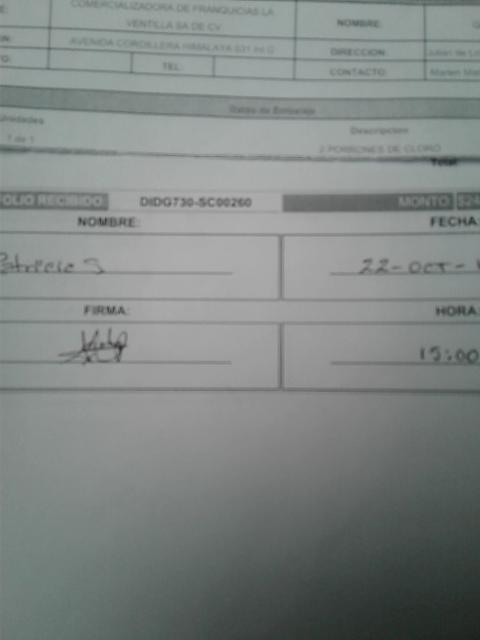 COMERCIALIZADORA DE FRANQUICIAS LA
VENTILLA SA DE CV
NOMBRE:
AVENIDA CORDILLERA HIMALAYA 631 Int G
DIRECCION:
TEL:
CONTACTO:
Datos de Embarque
Unidades
Descripcion
1 de 1
2 PORRONES DE CLORO
Total
FOLIO RECIBIDO: DIDG730-SC00260 MONTO $24
NOMBRE: FECHA:
22-OCT-
FIRMA: HORA:
15:00